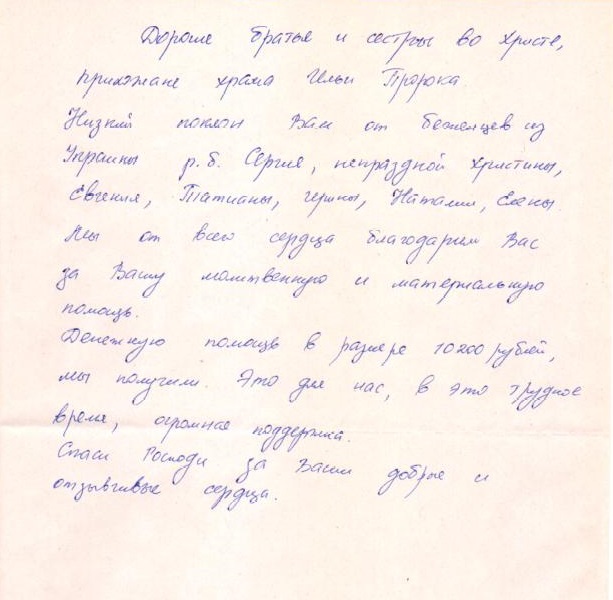 Дорогие братья и сестры во Христе,
прихожане храма Ильи Пророка
Низкий поклон Вам от беженцев из
Украины р.б. Сергия, непраздной Христины,
Евгения, Татианы, Ирины, Наталии, Елены.
Мы от всего сердца благодарим Вас
за Вашу молитвенную и материальную
помощь.
Денежную помощь в размере 10200 рублей,
мы получили. Это для нас, в это трудное
время, огромная поддержка.
Спаси Господи за Ваши добрые и
отзывчивые сердца.